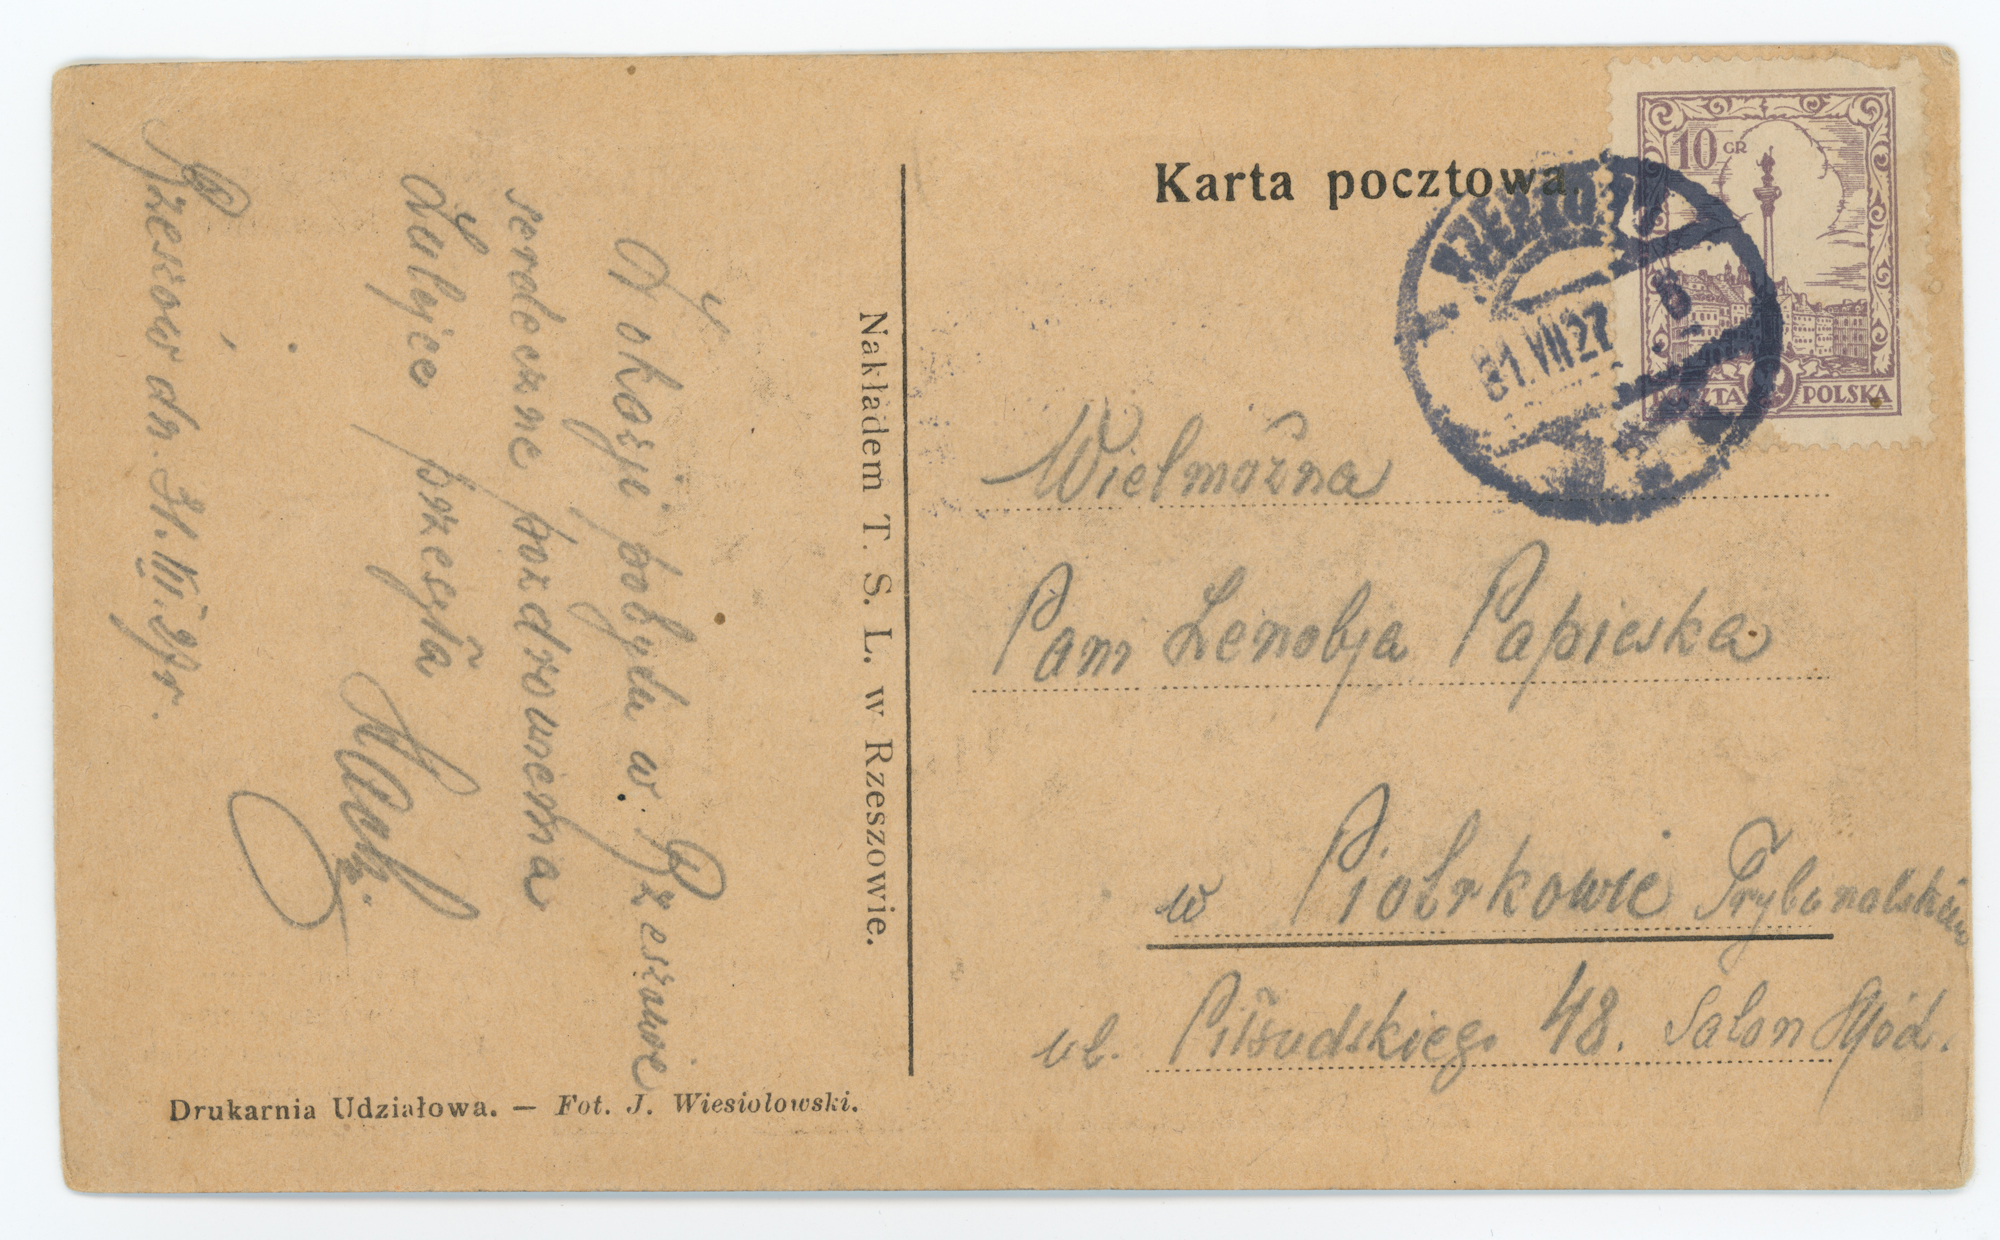 Karta pocztowa.
10 GR
POCZTA POLSKA
RZESZÓW
31.VII 27
Wielmożna
Pani Zenobja Papieska
w Piotrkowie Trybunalskim
ul. Piłsudskiego 48. Salon Mód.
Nakładem T. S. L. w Rzeszowie.
Z okazji pobytu w Rzeszowie
serdeczne pozdrowienia
Lulejce przesyła
Rzeszów dn. 31.VII.27r.
Drukarnia Udziałowa. — Fot. J. Wiesiolowski.